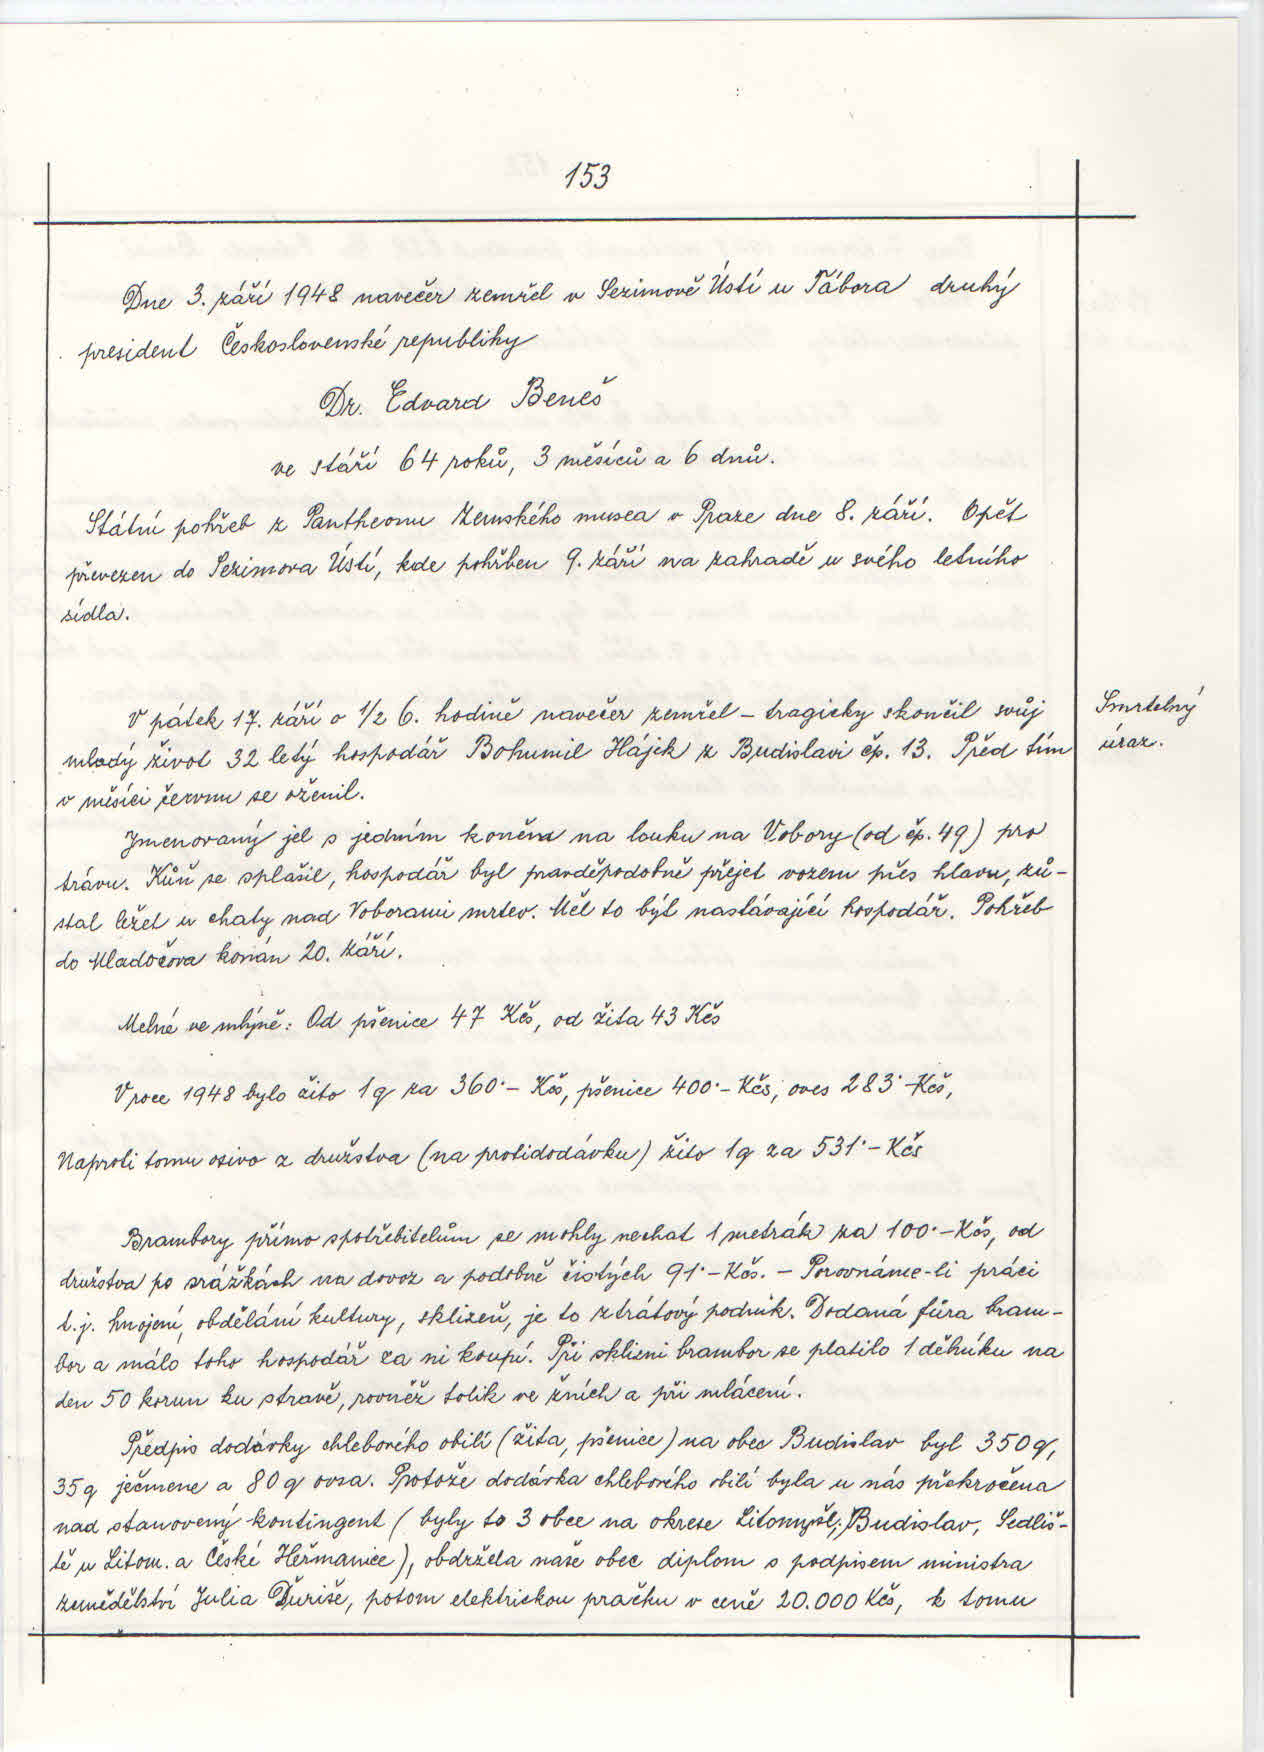 153
Dne 3. září 1948 navečer zemřel v Sezimově Ústí u Tábora druhý
president Československé republiky
Dr. Edvard Beneš
ve stáří 64 roků, 3 měsíců a 6 dnů.
Státní pohřeb z Pantheonu Zemského musea v Praze dne 8. září. Opět
převezen do Sezimova Ústí, kde pohřben 9. září na zahradě u svého letního
sídla.
V pátek 17. září o 1/2 6. hodině navečer zemřel – tragicky skončil svůj
mladý život 32 letý hospodář Bohumil Hájek z Budislavi čp. 13. Před tím
v měsíci červnu se oženil.
Smrtelný
úraz.
Jmenovaný jel s jedním koněm na louku na Vobory (od čp. 49) pro
trávu. Kůň se splašil, hospodář byl pravděpodobně přejet vozem přes hlavu, zů-
stal ležet u chaty nad Voborami mrtev. Měl to být nastávající hospodář. Pohřeb
do Mladočova konán 20. září.
Melné ve mlýně: Od pšenice 47 Kčs, od žita 43 Kčs
V roce 1948 bylo žito 1 q za 360·– Kčs, pšenice 400·– Kčs, oves 283·– Kčs,
Naproti tomu osivo z družstva (na protidodávku) žito 1 q za 531·– Kčs
Brambory přímo spotřebitelům se mohly nechat 1 metrák za 100·– Kčs, od
družstva po srážkách na dovoz a podobně čistých 91·– Kčs. – Porovnáme-li práci
t.j. hnojení, obdělání kultury, sklizeň, je to ztrátový podnik. Dodaná fůra bram-
bor a málo toho hospodář za ni koupí. Při sklizni brambor se platilo 1 děhníku na
den 50 korun ku stravě, rovněž tolik ve žních a při mlácení.
Předpis dodávky chlebového obilí (žita, pšenice) na obec Budislav byl 350 q,
35 q ječmene a 80 q ovsa. Protože dodávka chlebového obilí byla u nás překročena
nad stanovený kontingent (byly to 3 obce na okrese Litomyšl; Budislav, Sedliš-
tě u Litom. a České Heřmanice), obdržela naše obec diplom s podpisem ministra
zemědělství Julia Ďuriše, potom elektrickou pračku v ceně 20.000 Kčs, k tomu